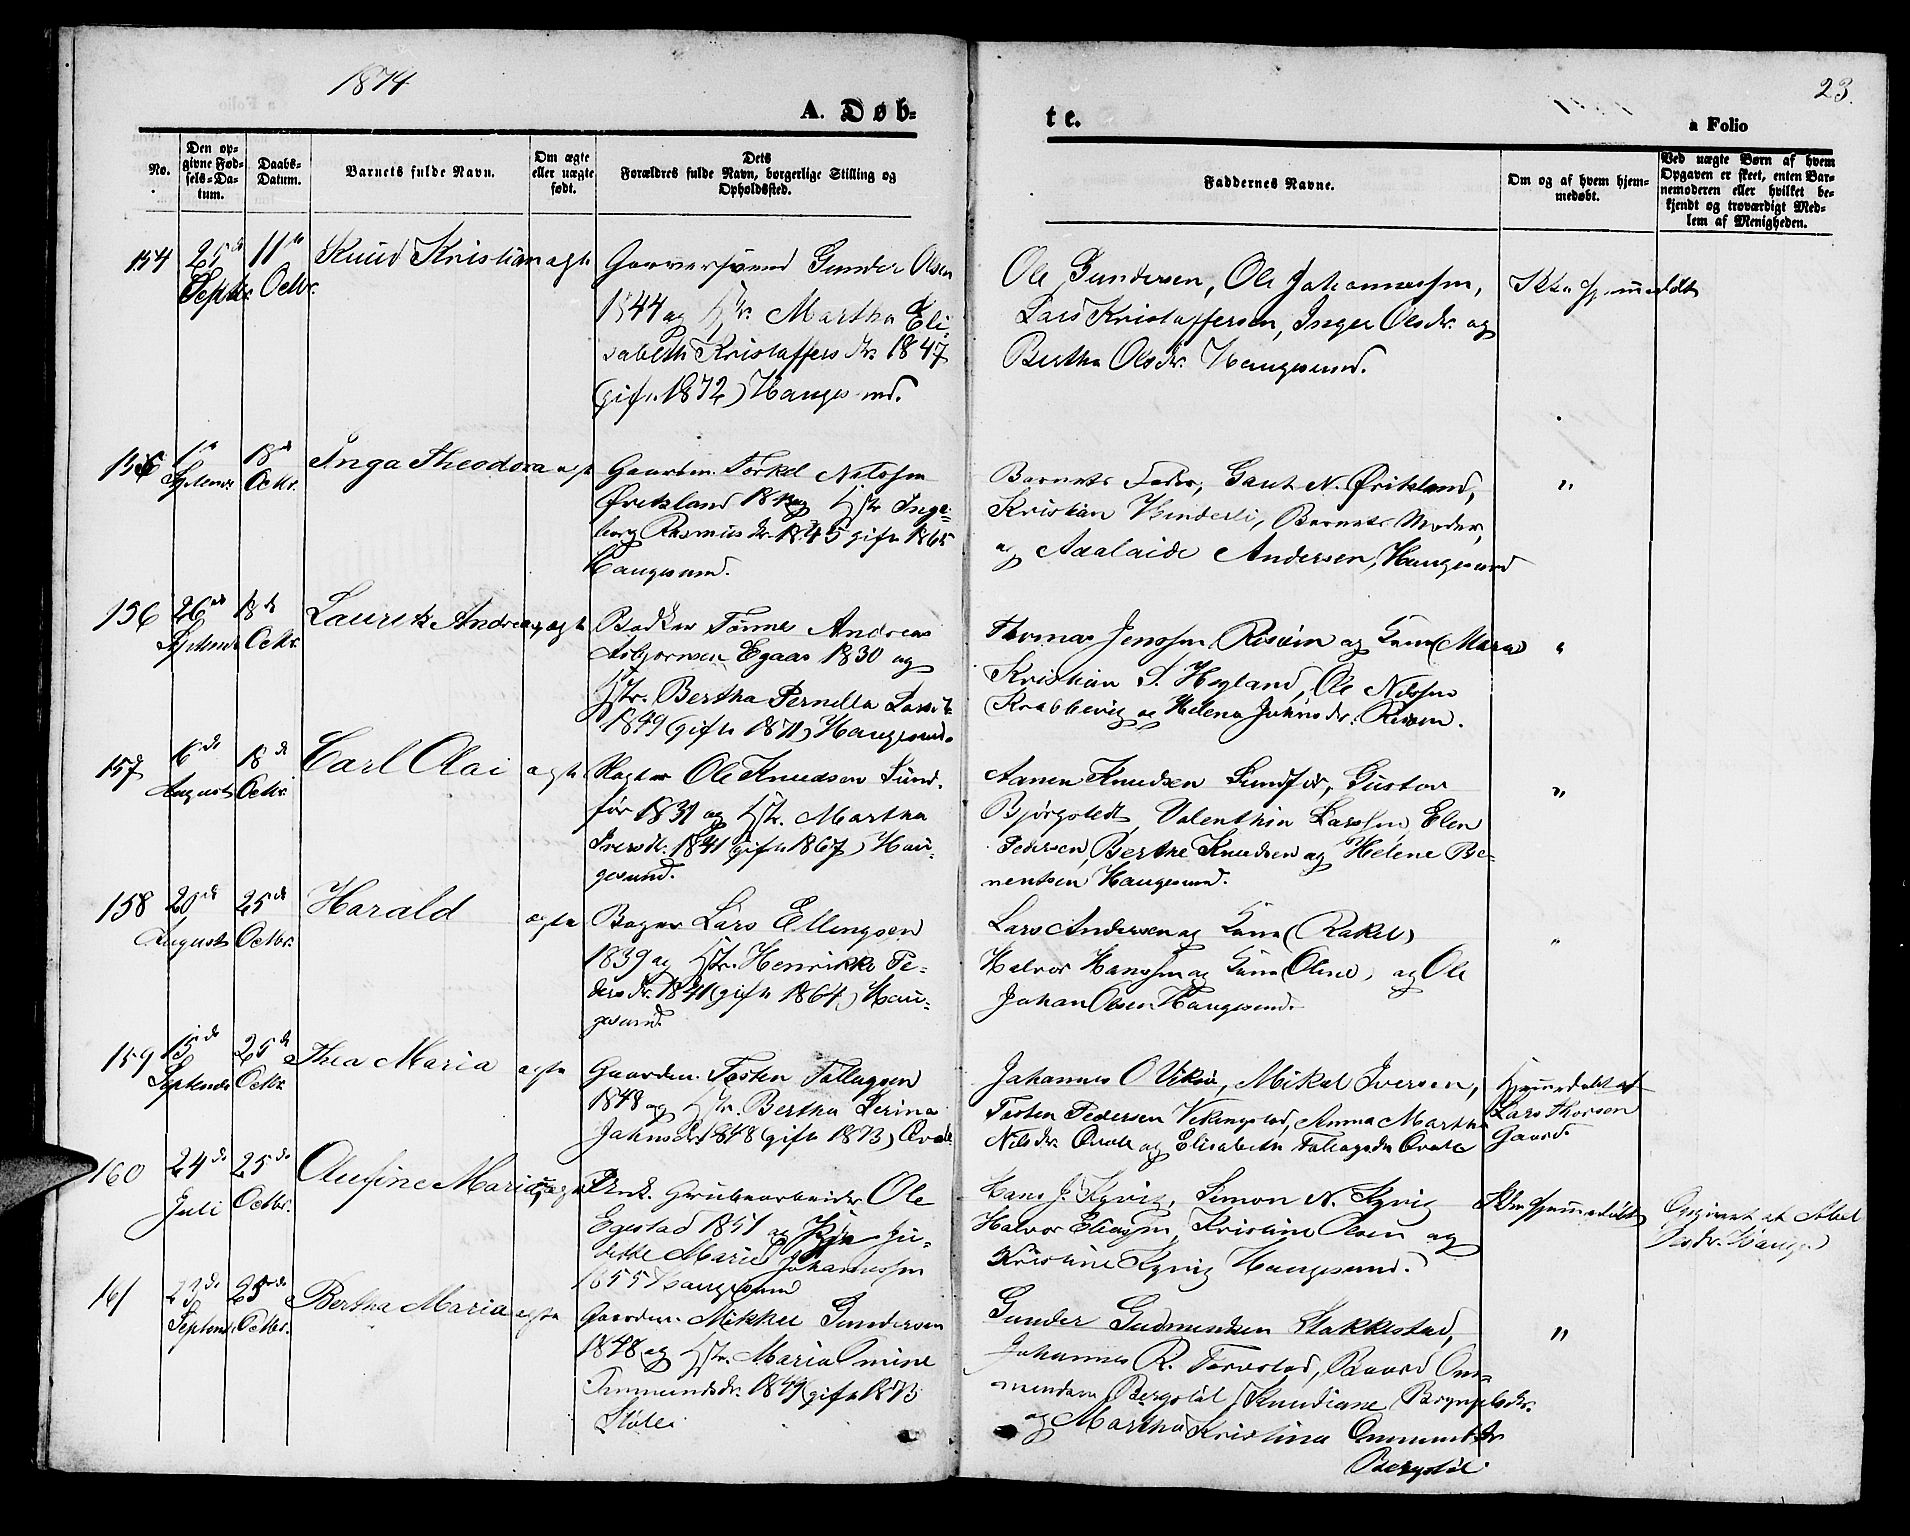 1874
23.
A. Døb-
te.
a Folio
No.
Den op-
givne Fød-
sels-Da-
tum.
Daabs-
Datum.
Barnets fulde Navn.
Om ægte
eller uægte
født.
Dets
Forældres fulde Navn, borgerlige Stilling og
Opholdssted.
Faddernes Navne.
Om og af hvem hjem-
medøbt.
Ved uægte Børn af hvem
Opgaven er skeet, enten Bar-
nemoderen eller hvilket be-
kjendt og troværdigt Med-
lem af Menigheden.
154
25de
Septbr.
11te
Octbr.
Knud Kristian
ægte
Garversvend Gunder Olsen
1844 og Hstr. Martha Eli-
sabeth Kristoffersdr. 1847
(gift 1872) Haugesund.
Ole Gundersen, Ole Johannessen,
Lars Kristoffersen, Inger Olsdr. og
Bertha Olsdr. Haugesund.
Ikke hjemmedøbt
155
1ste
Septembr
18de
Octbr.
Inga Theodora
ægte
Gaardm. Torkel Nilssen
Øvritsland og Hstr Inge-
borg Rasmusdr. 1845 gift 1865
Haugesund.
Barnets Fader, Gaut N. Øvritsland,
Kristian, Barnets Moder,
og Adalaide Andersen, Haugesund
"
156
26de
Septembr
18de
Octbr.
Lauritz Andreas
ægte
Bødker Tønnes Andreas
Asbjornsen Egaas 1830 og
Hstr. Bertha Pernella
1849 (gift 1871) Haugesund.
Thomas Jenssen Risøen og Kone (Maren)
Kristian S. Hegland, Ole Nilssen
Krabbevig og Helena Johnsdr. Risøen.
"
157
6de
August
18de
Octbr.
Carl Olai
ægte
Slagter Ole Knudsen Sund-
før 1831 og Hstr. Martha
Iversdr. 1841 (gift 1867) Hau-
gesund.
Aanen Knudsen Sundfør, Gustav
Bjørgstedt, Valenthin Larssen, Elen
Pedersen, Berthe Knudsen og Helene Be-
nentsen Haugesund.
"
158
20de
August
25de
Octbr.
Harald
ægte
Bager Lars Ellingsen
1839 og Hstr. Henrikke Pe-
dersdr. 1841 (gift 1864) Hau-
gesund.
Lars Andersen og Kone (Rakel)
Halvor Hanssen og Kone (Oline) og Ole
Johan Olsen Haugesund.
"
159
15de
September
25de
Octbr.
Thea Maria
ægte
Gaardm. Torsten Tollagsen
1848 og Hstr. Bertha Serina
Johnsdr. 1848 (gift 1873)
Johannes O Viksø, Mikal Iversen,
Torsten Pedersen Vikingstad, Anna Martha
Nilsdr. og Elisabeth Tollagsdr
Hjemmedøbt af
Lars Thorsen
Gaard.
160
24de
Juli
25de
Octbr.
Olufine Marie
uægte
Unk. Grubearbeider Ole
Egestad 1851 og Pige Ju-
Marie Johannessen
1855 Haugesund
Hans J. Kyvig, Simon N. Kyvig
Halvor Eliassen, Kristine Olsen og
Kristine Kyvig Haugesund.
Ikke hjemmedøbt
Opgivet af Abel
161
23de
Septembr
25de
Octbr.
Bertha Maria
ægte
Gaardm. Mikkel Gundersen
1848 og Hstr. Maria Omine
1849 (gift 1873
Støle
Gunder Gudmundsen Stakkestad,
Johannes R. Torvestad, Baard Om-
mundsen Bergstøl, Knudiane Brynjelsdr.
og Martha Kristina Ommundsdr
Bergstøl
"